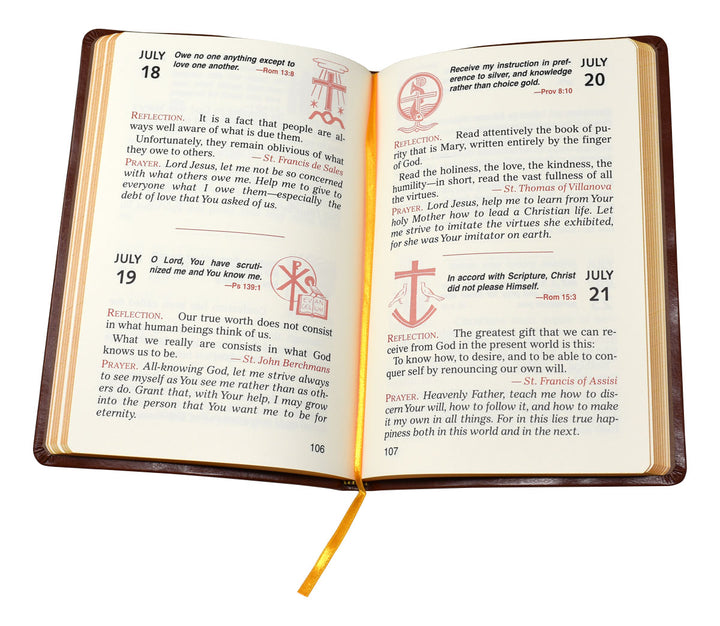 JULY
18
Owe no one anything except to
love one another.
—Rom 13:8
REFLECTION. It is a fact that people are al-
ways well aware of what is due them.
Unfortunately, they remain oblivious of what
they owe to others.
— St. Francis de Sales
PRAYER. Lord Jesus, let me not be so concerned
with what others owe me. Help me to give to
everyone what I owe them—especially the
debt of love that You asked of us.
JULY
19
O Lord, You have scruti-
nized me and You know me.
—Ps 139:1
REFLECTION. Our true worth does not consist
in what human beings think of us.
What we really are consists in what God
knows us to be.
— St. John Berchmans
PRAYER. All-knowing God, let me strive always
to see myself as You see me rather than as oth-
ers do. Grant that, with Your help, I may grow
into the person that You want me to be for
eternity.
106
Receive my instruction in pref-
erence to silver, and knowledge
rather than choice gold.
—Prov 8:10
JULY
20
REFLECTION. Read attentively the book of pu-
rity that is Mary, written entirely by the finger
of God.
Read the holiness, the love, the kindness, the
humility—in short, read the vast fullness of all
the virtues.
— St. Thomas of Villanova
PRAYER. Lord Jesus, help me to learn from Your
holy Mother how to lead a Christian life. Let
me strive to imitate the virtues she exhibited,
for she was Your imitator on earth.
In accord with Scripture, Christ
did not please Himself.
—Rom 15:3
JULY
21
REFLECTION. The greatest gift that we can re-
ceive from God in the present world is this:
To know how, to desire, and to be able to con-
quer self by renouncing our own will.
— St. Francis of Assisi
PRAYER. Heavenly Father, teach me how to dis-
cern Your will, how to follow it, and how to make
it my own in all things. For in this lies true hap-
piness both in this world and in the next.
107